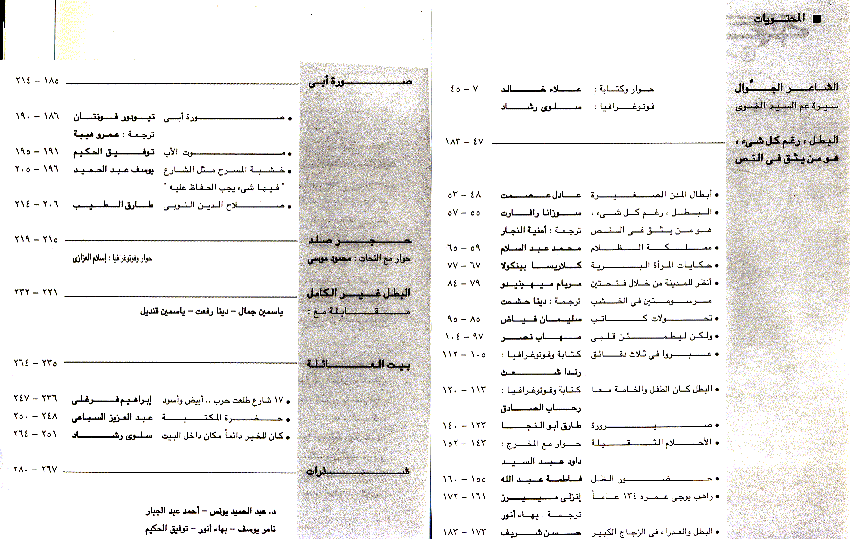 ■ المحتويات
الشاعر الجوّال
سيرة عم السيد الضوى
حوار وكتابة : علاء خالد ٧ - ٤٥
فوتوغرافيا : سلوى رشاد
البطل ، رغم كل شىء ،
هو من يثق فى النص
٤٧ - ١٨٣
• أبطال المدن الصغيرة عادل عصمت ٤٨ - ٥٣
• البطل ، رغم كل شىء ، سوزانا والارت ٥٥ - ٥٧
هو من يثق فى النص ترجمة : أمنية النجار
• مملكة الظلام محمد عبد السلام ٥٩ - ٦٥
• حكايات المرأة البرية كلاريسا بينكولا ٦٧ - ٧٧
• أنظر للمدينة من خلال فتحتين مريام ميهينيدو ٧٩ - ٨٤
مرسومتين فى الخشب ترجمة : دينا حشمت
• تحولات كاتب سليمان فياض ٨٥ - ٩٥
• ولكن ليطمئن قلبى مهاب نصر ٩٧ - ١٠٤
• عبروا فى ثلاث دقائق كتابة وفوتوغرافيا : ١٠٥ - ١١٢
رندا شعث
• البطل كان الطفل والخاسة معا كتابة وفوتوغرافيا : ١١٣ - ١٢٠
رحاب الصادق
• صيرورة طارق أبو النجا ١٢٣ - ١٤٠
• الأحلام الثقيلة حوار مع المخرج : ١٤٣ - ١٥٢
داود عبد السيد
• حضور الظل فاطمة عبد الله ١٥٥ - ١٦٠
• راهب يرجى عمره ١٣٤ عاماً إنزلى مييرز ١٦١ - ١٧٢
ترجمة : بهاء أنور
• البطل والعذراء فى الزجاج الكبير حسن شريف ١٧٣ - ١٨٣
صورة أبى ١٨٥ - ٢١٤
• صورة أبى تيودور فونتان ١٨٦ - ١٩٠
ترجمة : عمرو هيبة
• موت الأب توفيق الحكيم ١٩١ - ١٩٥
• خشبة المسرح مثل الشارع يوسف عبد الحميد ١٩٦ - ٢٠٥
" فيها شىء يجب الحفاظ عليه "
• صلاح الدين النوبى طارق الطيب ٢٠٦ - ٢١٤
حجر صلد ٢١٥ - ٢١٩
حوار مع النحات : محمود موسى حوار وفوتوغرافيا : إسلام العزازى
البطل غير الكامل ٢٢١ - ٢٣٢
مقابلة مع : ياسمين جمال - دينا رفعت - ياسمين قنديل
بيت العائلة ٢٣٥ - ٢٦٤
• ١٧ شارع طلعت حرب .. أبيض وأسود إبراهيم فرغلى ٢٣٦ - ٢٤٧
• حضرة المكتبة عبد العزيز السباعى ٢٤٨ - ٢٥٠
• كان للخير دائماً مكان داخل البيت سلوى رشاد ٢٥١ - ٢٦٤
شذرات ٢٦٧ - ٢٨٠
د. عبد الحميد يونس - أحمد عبد الجبار
تامر يوسف - بهاء أنور - توفيق الحكيم